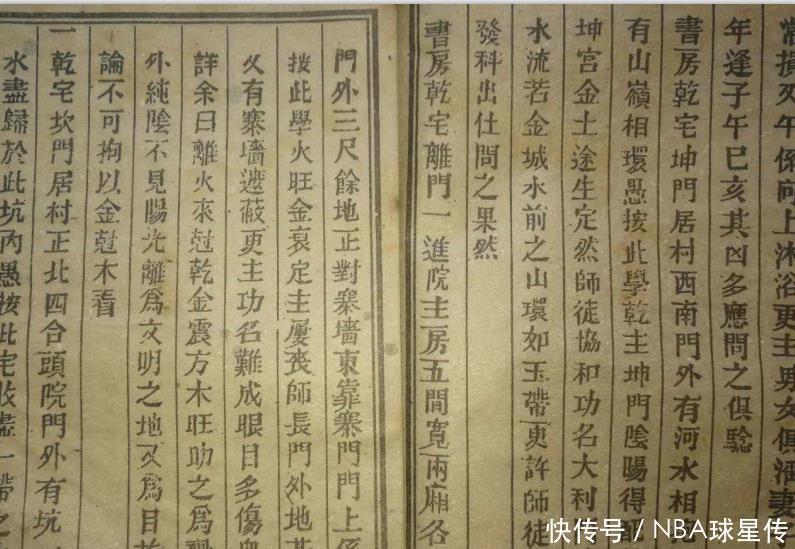 常損又午係向上沐浴更主男女俱
年逢子午巳亥其凶多應問之俱驗
書房乾宅坤門居村西南門外有河水相
有山嶺相環愚按此學乾主坤門陰陽得
坤宮金土途生定然師徒協和功名大利
水流若金城水前之山環如玉帶更許師徒
發科出仕問之果然
書房乾宅離門一進院主房五間寬兩廂各
門外三尺餘地正對寨墻東靠寨門門上係
按此學火旺金衰定主屢喪師長門外地
又有寨墻遮蔽更主功名難成眼目多傷
詳余曰離火來尅乾金震方木旺助之爲
外純陰不見陽光離爲文明之地又爲目
論不可拘以金尅木看
一乾宅坎門居村正北四合頭院門外有坑
水盡歸於此坑內愚按此宅收盡一帶之
快传号/NBA球星传